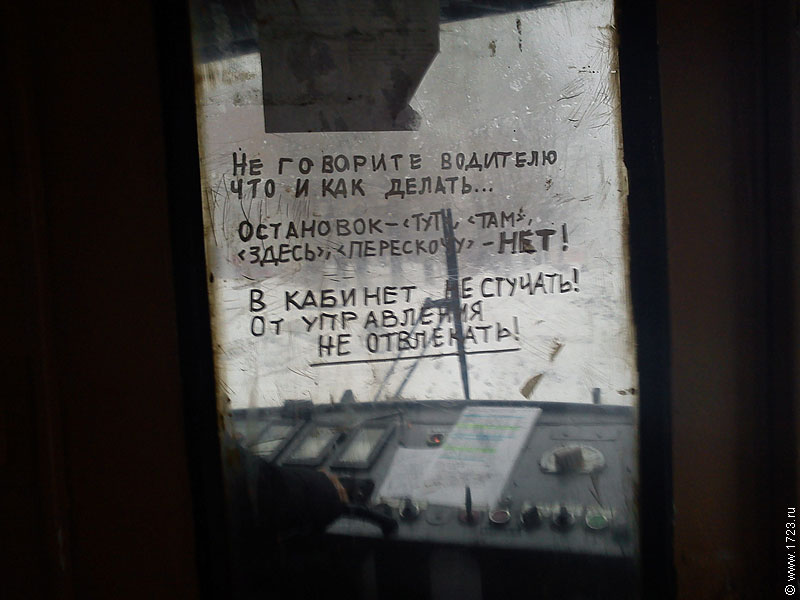 НЕ ГОВОРИТЕ ВОДИТЕЛЮ
ЧТО И КАК ДЕЛАТЬ...
ОСТАНОВОК-«ТУТ», «ТАМ»,
«ЗДЕСЬ», «ПЕРЕСКОЧУ» - НЕТ!
В КАБИНЕТ НЕ СТУЧАТЬ!
ОТ УПРАВЛЕНИЯ
НЕ ОТВЛЕКАТЬ!
© www.1723.ru